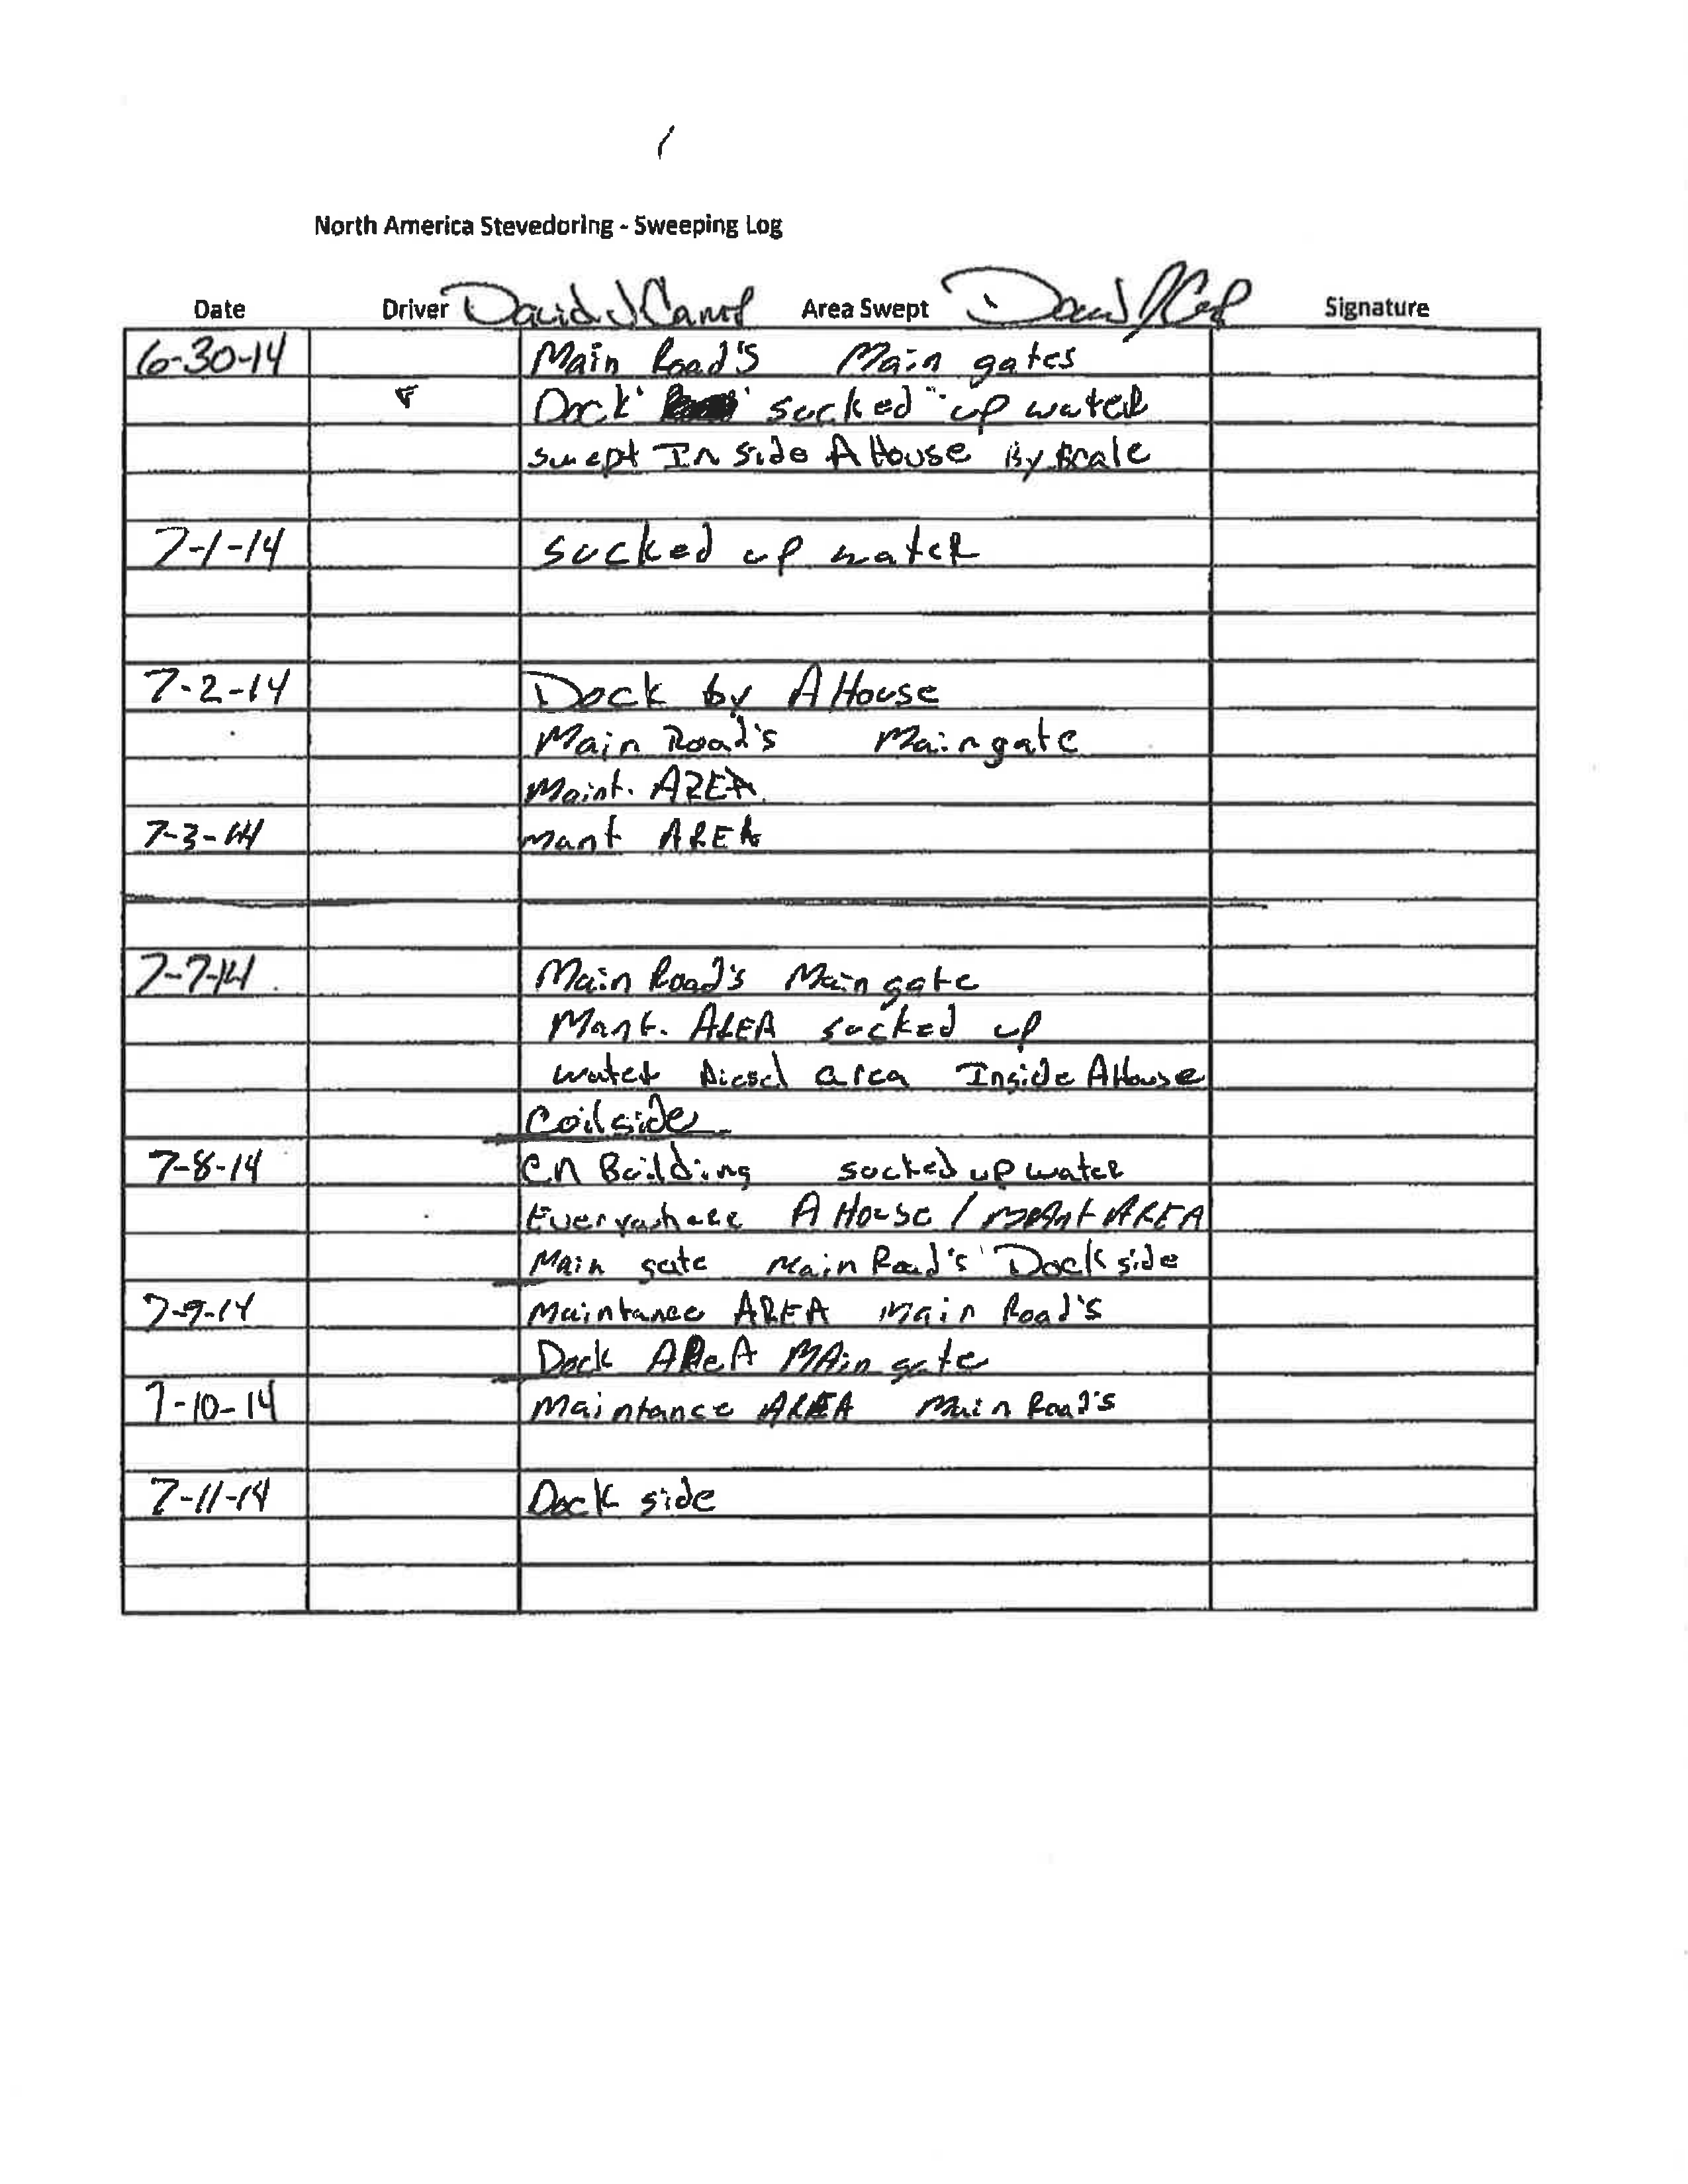 North America Stevedoring - Sweeping Log
Date Driver David J Area Swept Signature
6-30-14 Main Road's Main gates
Dock sucked up water
swept Inside A House By scale
7-1-14 sucked up water
7-2-14 Dock by A House
Main Road's Main gate
Maint. AREA
7-3-14 Mant AREA
7-7-14 Main Road's Main gate
Mant. AREA sucked up
water Diesel area Inside A House
Coilside
7-8-14 CN Building sucked up water
Everywhere A House / Mant AREA
Main gate Main Road's Dock side
7-9-14 Maintance AREA Main Road's
Dock AReA MAin gate
7-10-14 Maintance AREA Main Road's
7-11-14 Dock side